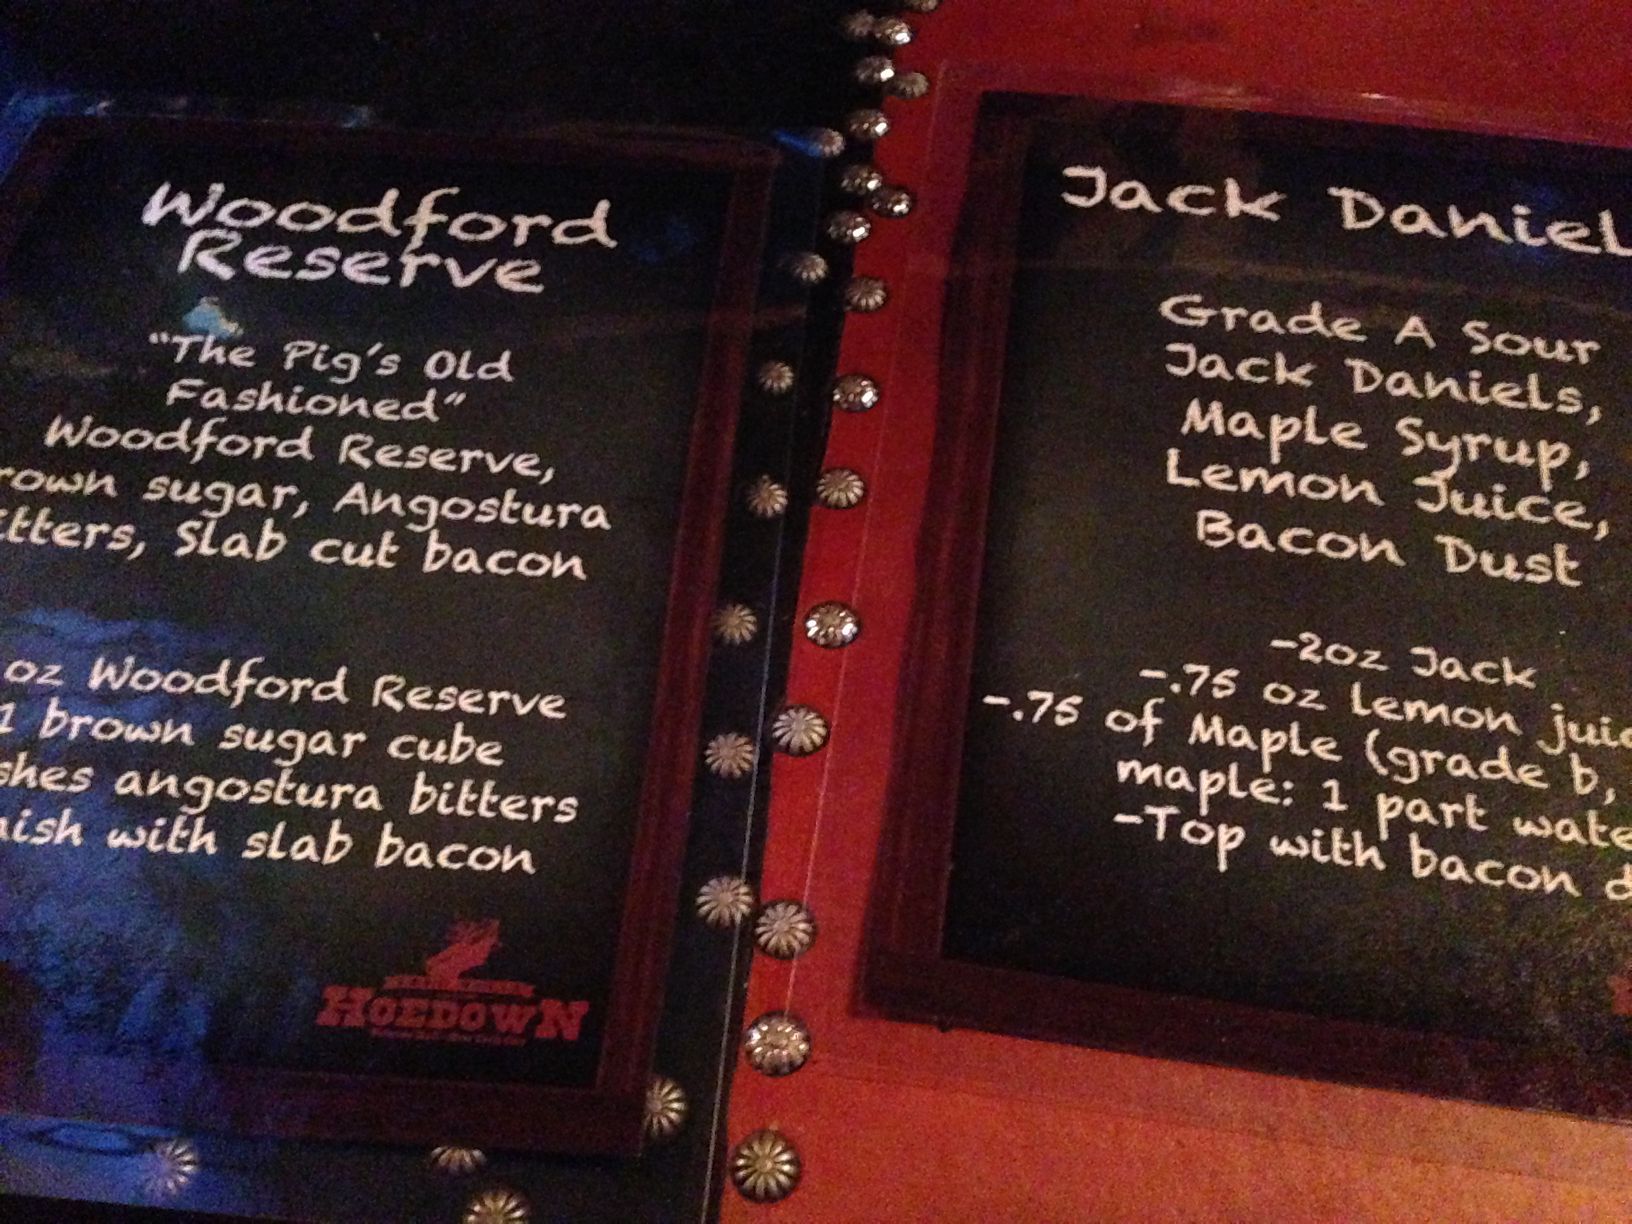 Woodford
Reserve
"The Pig's Old
Fashioned"
Woodford Reserve,
rown sugar, Angostura
tters, Slab cut bacon
oz Woodford Reserve
1 brown sugar cube
shes angostura bitters
nish with slab bacon
HOEDOWN
Jack Daniel
Grade A Sour
Jack Daniels,
Maple Syrup,
Lemon Juice,
Bacon Dust
-2oz Jack
-.75 oz lemon juic
-.75 of Maple (grade b,
maple: 1 part wate
-Top with bacon d